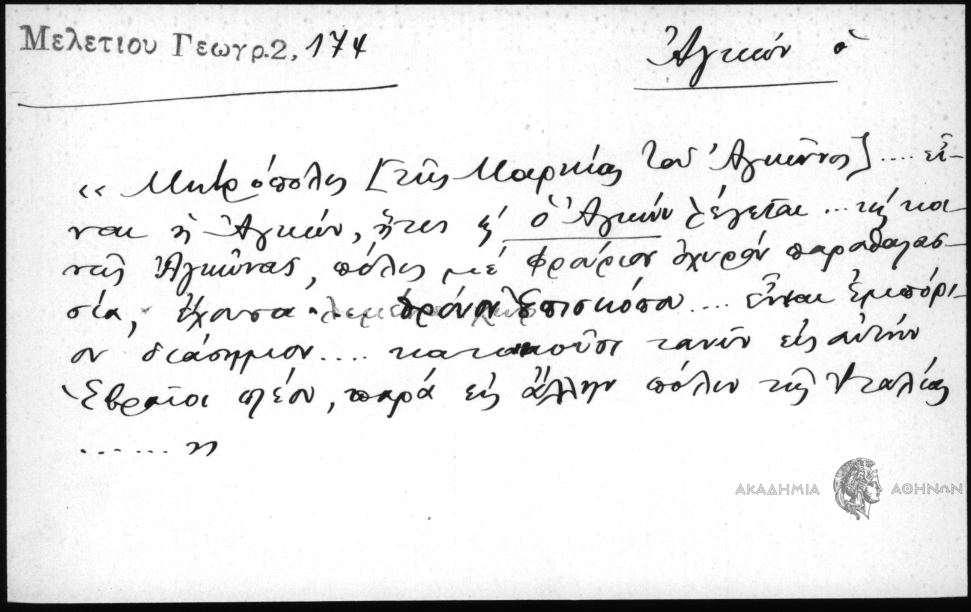 Μελετίου Γεωγρ. 2, 174
Ἀγκών ὁ
«Μητρόπολις [τῆς Μαρκίας τοῦ Ἀγκῶνος].... εἶ-
ναι ἡ Ἀγκών, ἥτις ὁ Ἀγκών λέγεται... τις κοι-
νῶς Ἀγκῶνας, πόλις μέ Φρούριον ὀχυρόν παραθαλασ-
σία, ἔχουσα θρόνον Ἐπισκόπου... εἶναι ἐμπόρι-
ον διάσημον.... κατοικοῦσι τανῦν εἰς αὐτήν
Ἑβραῖοι πλέον, παρά εἰς ἄλλην πόλιν τῆς Ἰταλίας
.......»
ΑΚΑΔΗΜΙΑ ΑΘΗΝΩΝ